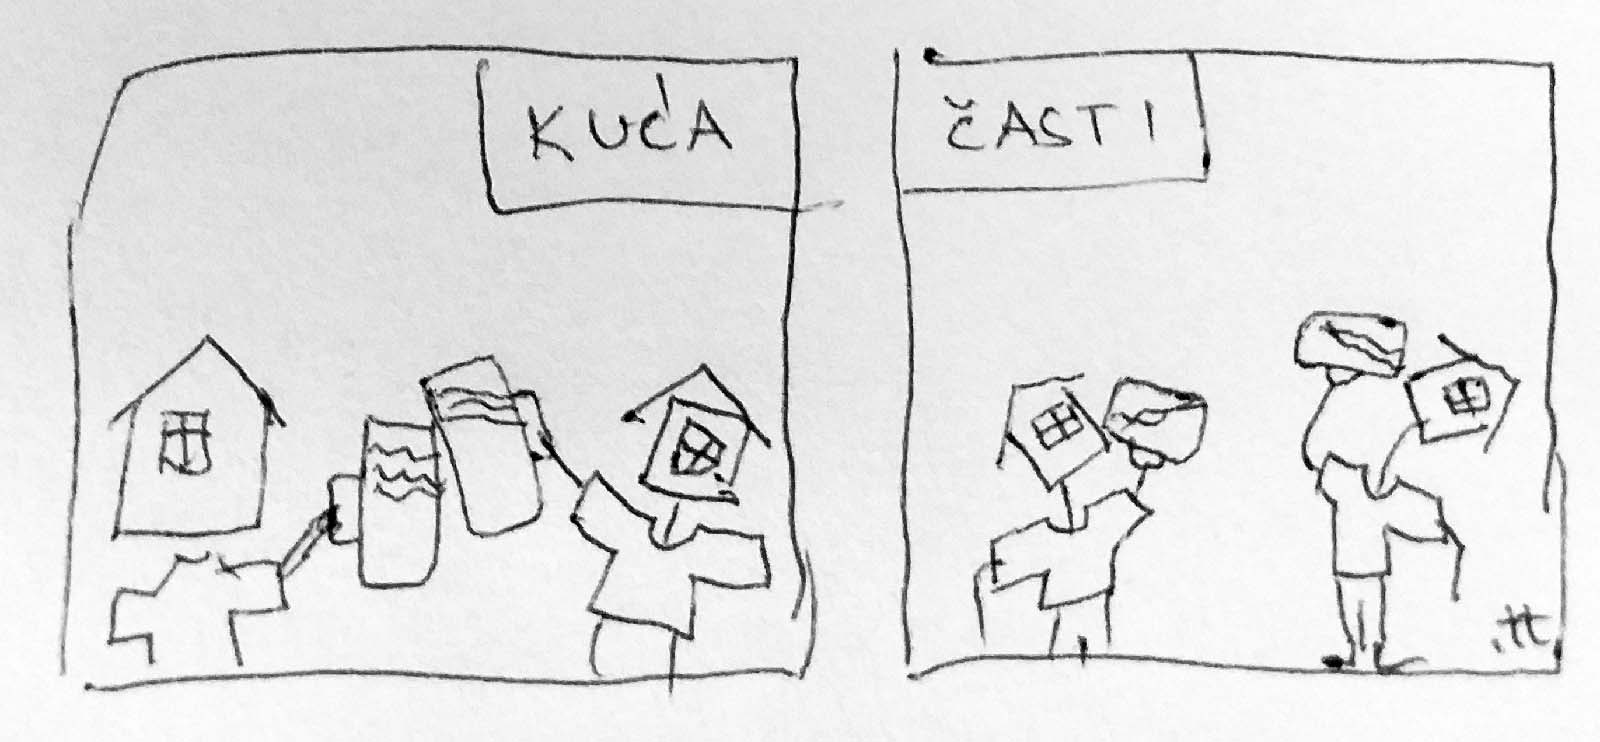 KUĆA
ČASTI
.tt